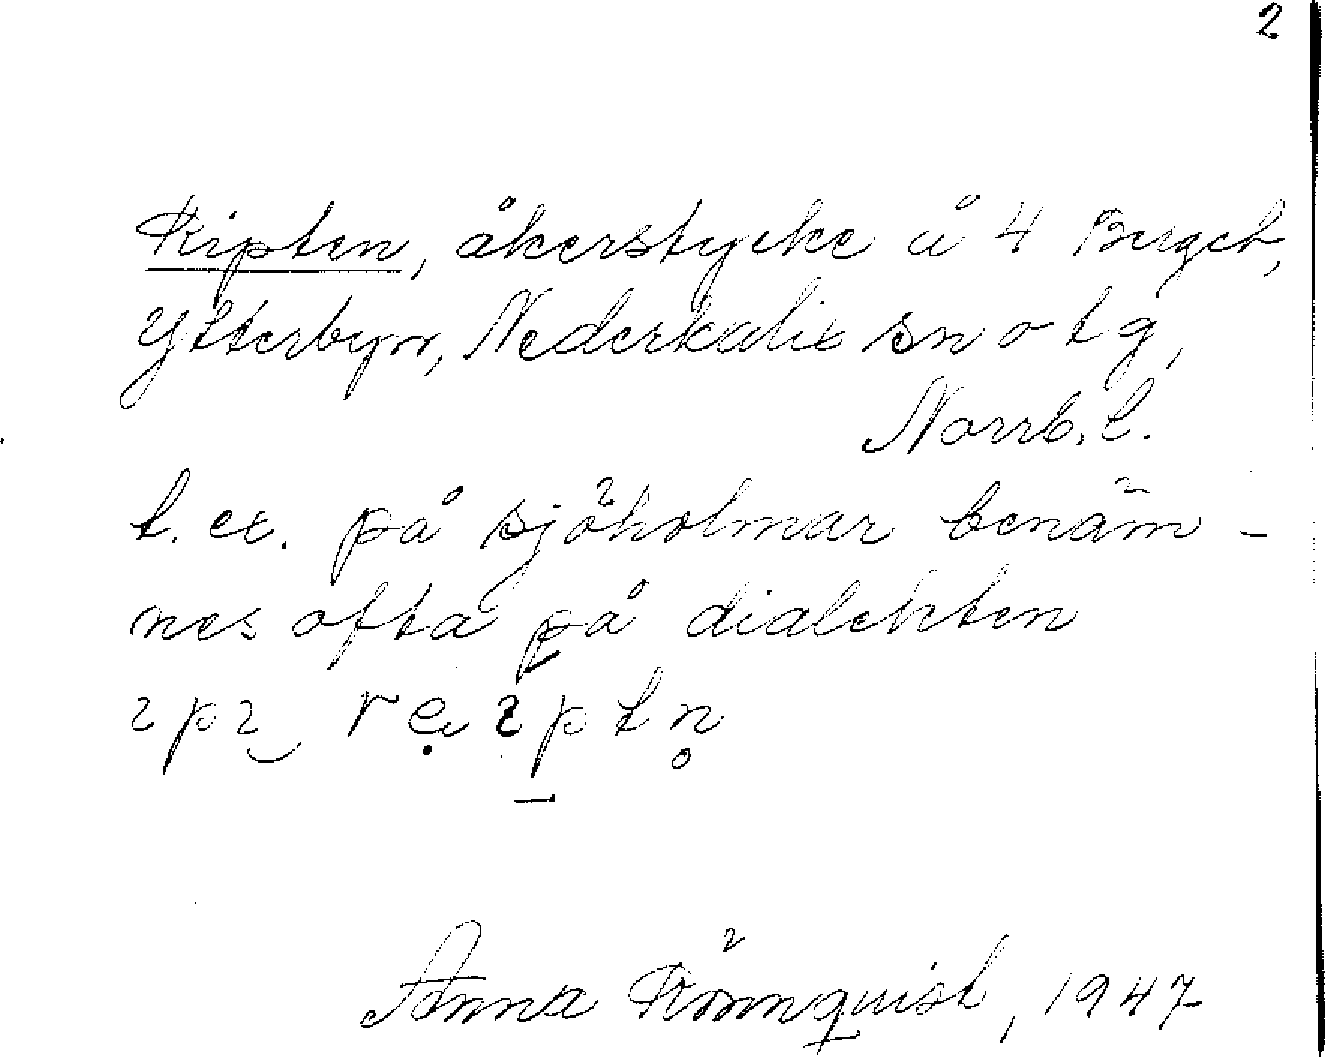 2
Ripten, åkerstycke å 4 Berget,
Ytterbyn, Nederkalix sn o tg,
Norrb. l.
t. ex. på sjöholmar benäm-
nes ofta på dialekten
Anna Rönnquist, 1947